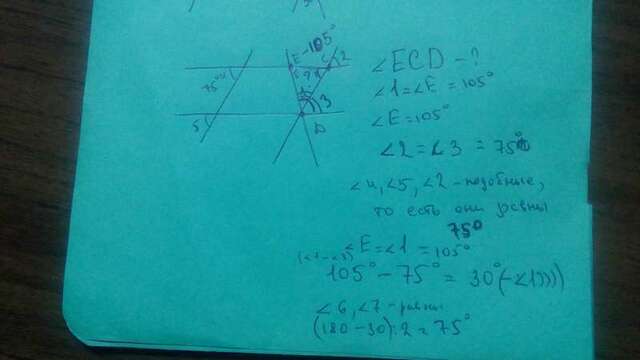 E-105°
C
2
75°
5
3
D
∠ECD - ?
∠1=∠E = 105°
∠E=105°
∠2=∠3 = 75°
∠4, ∠5, ∠2 - подобные,
то есть они равны
75°
∠E=∠1 = 105°
105° - 75° = 30°(-∠1))))
∠6, ∠7 - равны
(180-30):2=75°